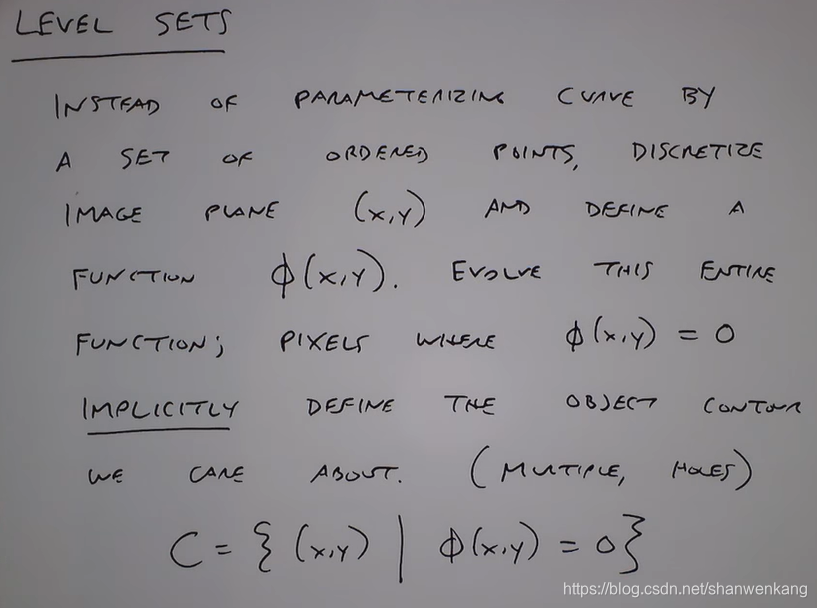 LEVEL SETS
INSTEAD OF PARAMETERIZING CURVE BY
A SET OF ORDERED POINTS, DISCRETIZE
IMAGE PLANE (X,Y) AND DEFINE A
FUNCTION ϕ(X,Y). EVOLVE THIS ENTIRE
FUNCTION; PIXELS WHERE ϕ(X,Y) = 0
IMPLICITLY DEFINE THE OBJECT CONTOUR
WE CARE ABOUT. (MULTIPLE, HOLES)
C = { (X,Y) | ϕ(X,Y) = 0 }
https://blog.csdn.net/shanwenkang